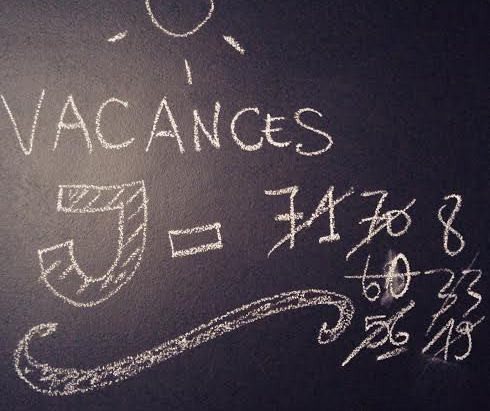 VACANCES
J - 71 70 8
60 33
56 19